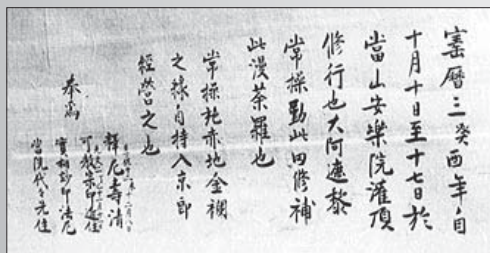 宝曆三癸酉年自
十月十日至十七日於
當山安樂院灌頂
修行也大阿遮黎
常操勤此回修補
此漫荼羅也
常操秔赤地金襴
之緣自持入京即
經營之也
奉為
釋尼壽清
實相妙印法尼
當院代々先住